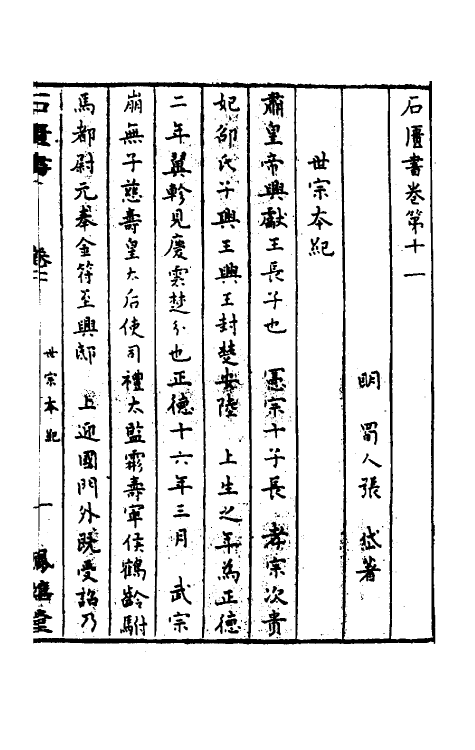 石匱書卷第十一
明 蜀人張 岱著
世宗本紀
肅皇帝興獻王長子也 憲宗十子長 孝宗次貴
妃邵氏子興王興王封楚安陸 上生之年為正德
二年翼軫見慶雲楚分也正德十六年三月 武宗
崩無子慈壽皇太后使司禮太監霦壽寧侯鶴齡駙
馬都尉元奉金符至興邸 上迎國門外跪受詔乃
石匱書 卷十一 世宗本紀 一 鳳嬉堂